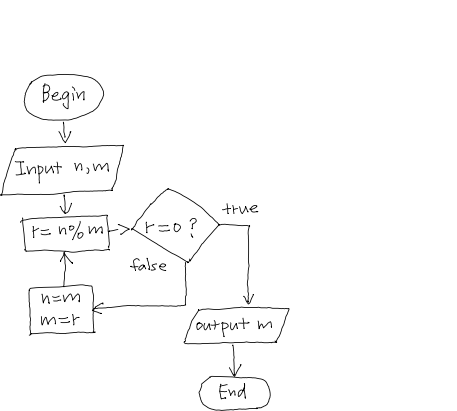 Begin
Input n,m
r= n%m
r=0 ?
true
false
n=m
m=r
output m
End